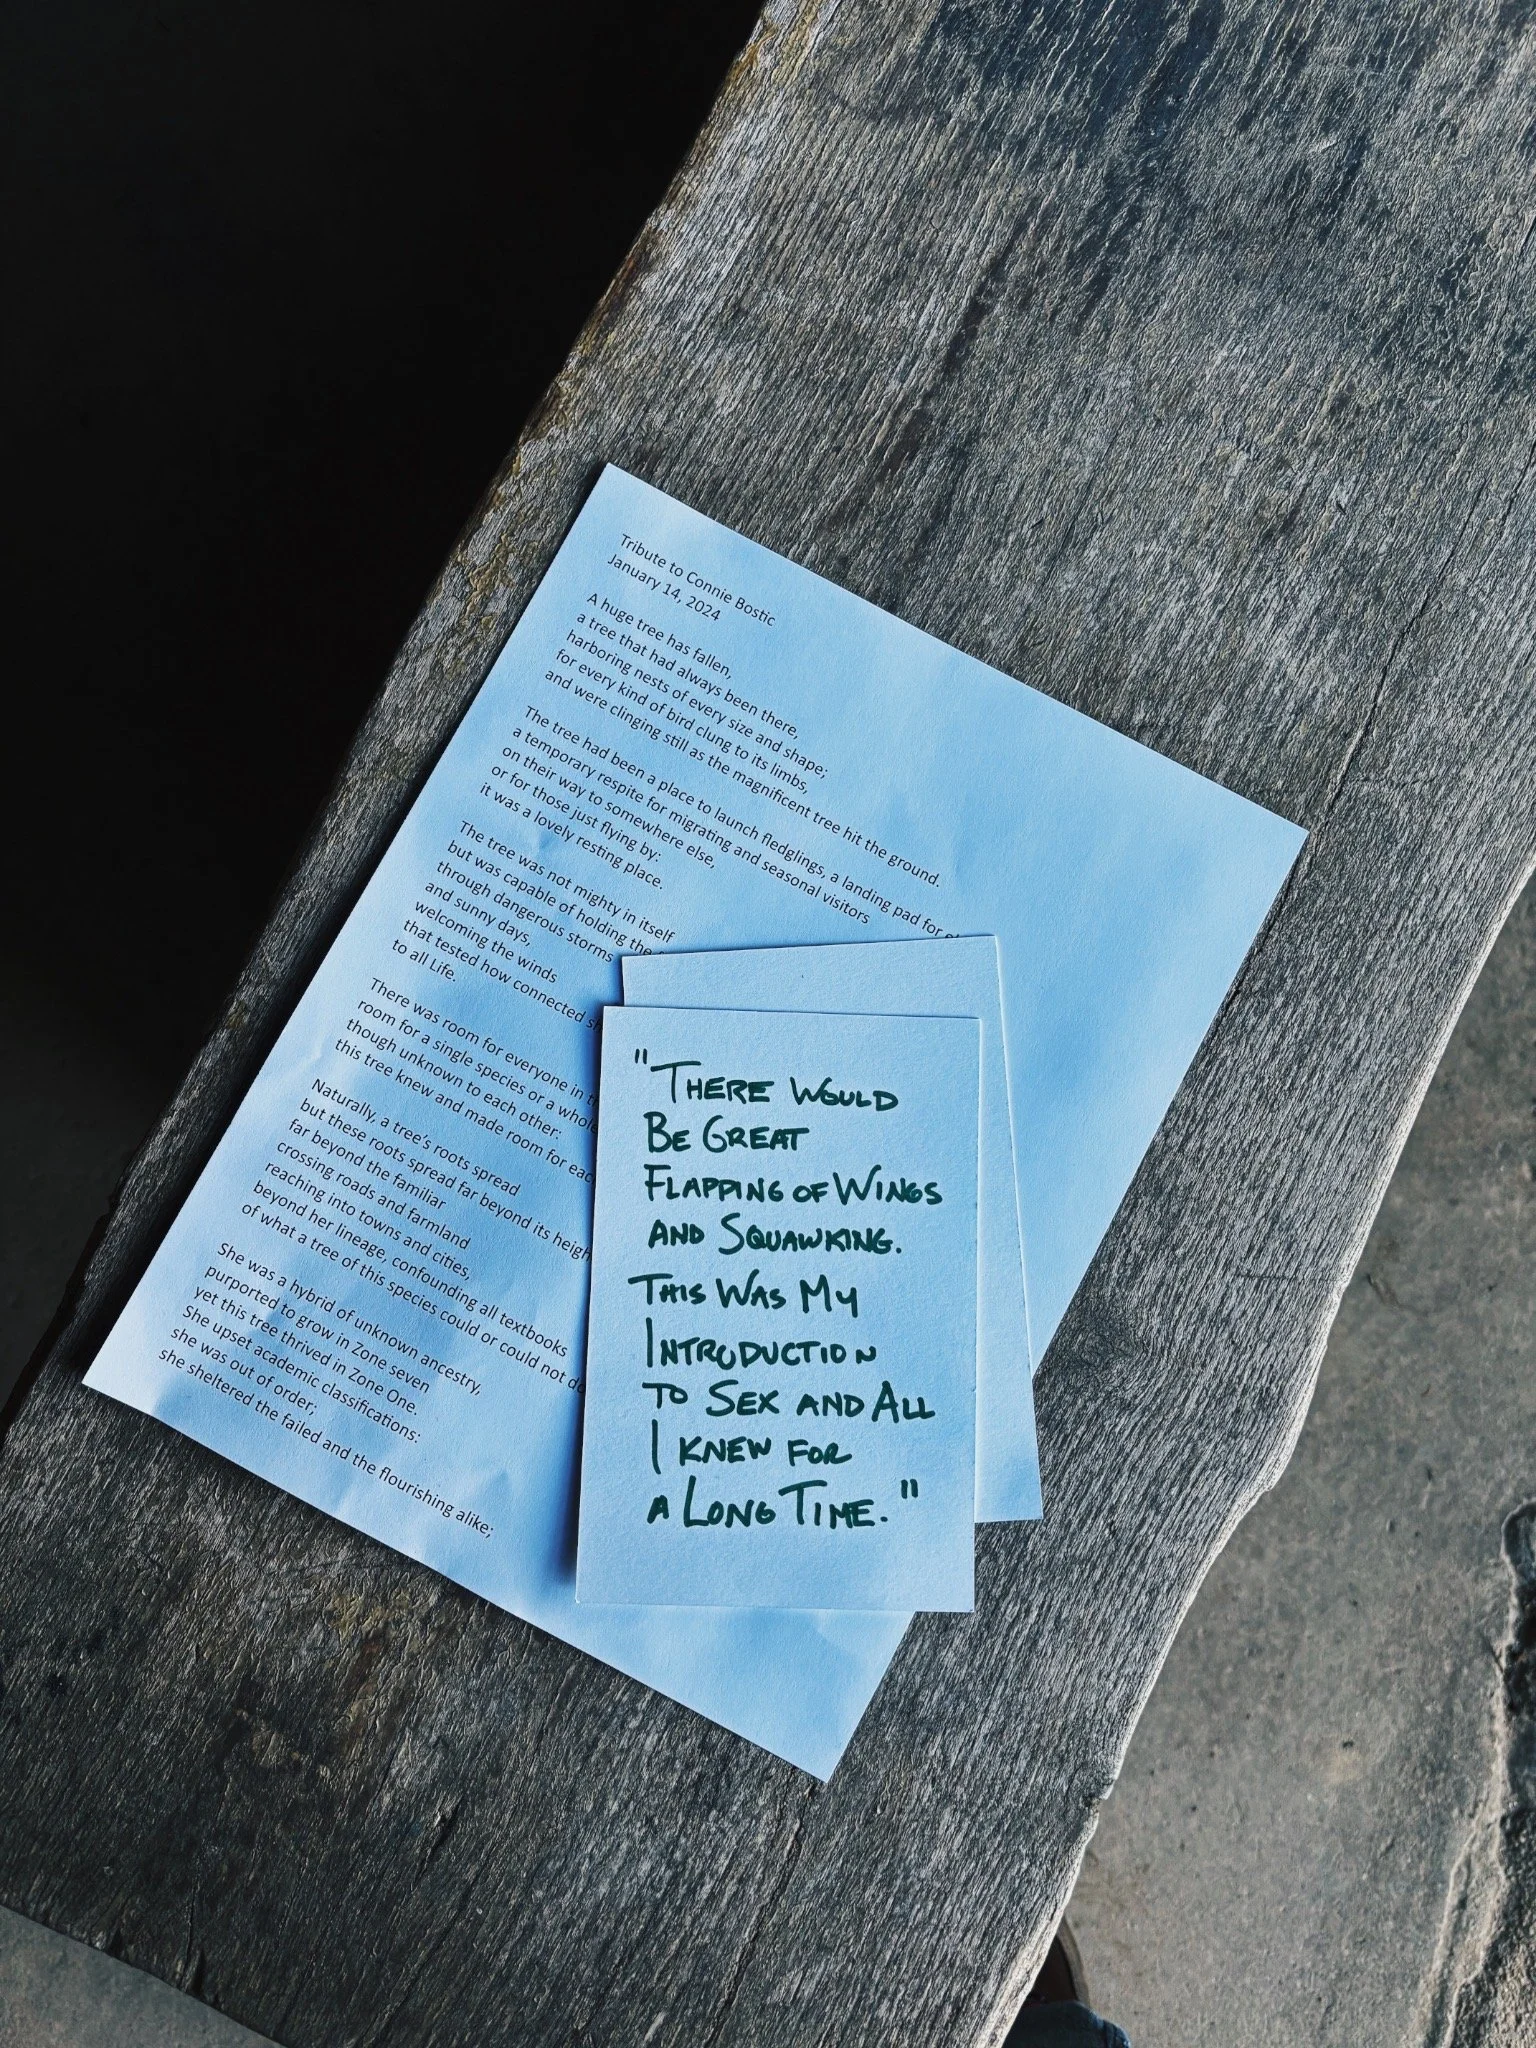 Tribute to Connie Bostic
January 14, 2024
A huge tree has fallen,
a tree that had always been there,
harboring nests of every size and shape;
for every kind of bird clung to its limbs,
and were clinging still as the magnificent tree hit the ground.
The tree had been a place to launch fledglings, a landing pad for
a temporary respite for migrating and seasonal visitors
on their way to somewhere else,
or for those just flying by:
it was a lovely resting place.
The tree was not mighty in itself
but was capable of holding the
through dangerous storms
and sunny days,
welcoming the winds
that tested how connected
to all Life.
There was room for everyone in
room for a single species or a
though unknown to each other:
this tree knew and made room for
Naturally, a tree's roots spread
but these roots spread far beyond its
far beyond the familiar
crossing roads and farmland
reaching into towns and cities,
beyond her lineage, confounding all textbooks
of what a tree of this species could or could not
She was a hybrid of unknown ancestry,
purported to grow in Zone seven
yet this tree thrived in Zone One.
She upset academic classifications:
she was out of order;
she sheltered the failed and the flourishing alike;
"THERE WOULD
BE GREAT
FLAPPING OF WINGS
AND SQUAWKING.
THIS WAS MY
INTRODUCTION
TO SEX AND ALL
I KNEW FOR
A LONG TIME."